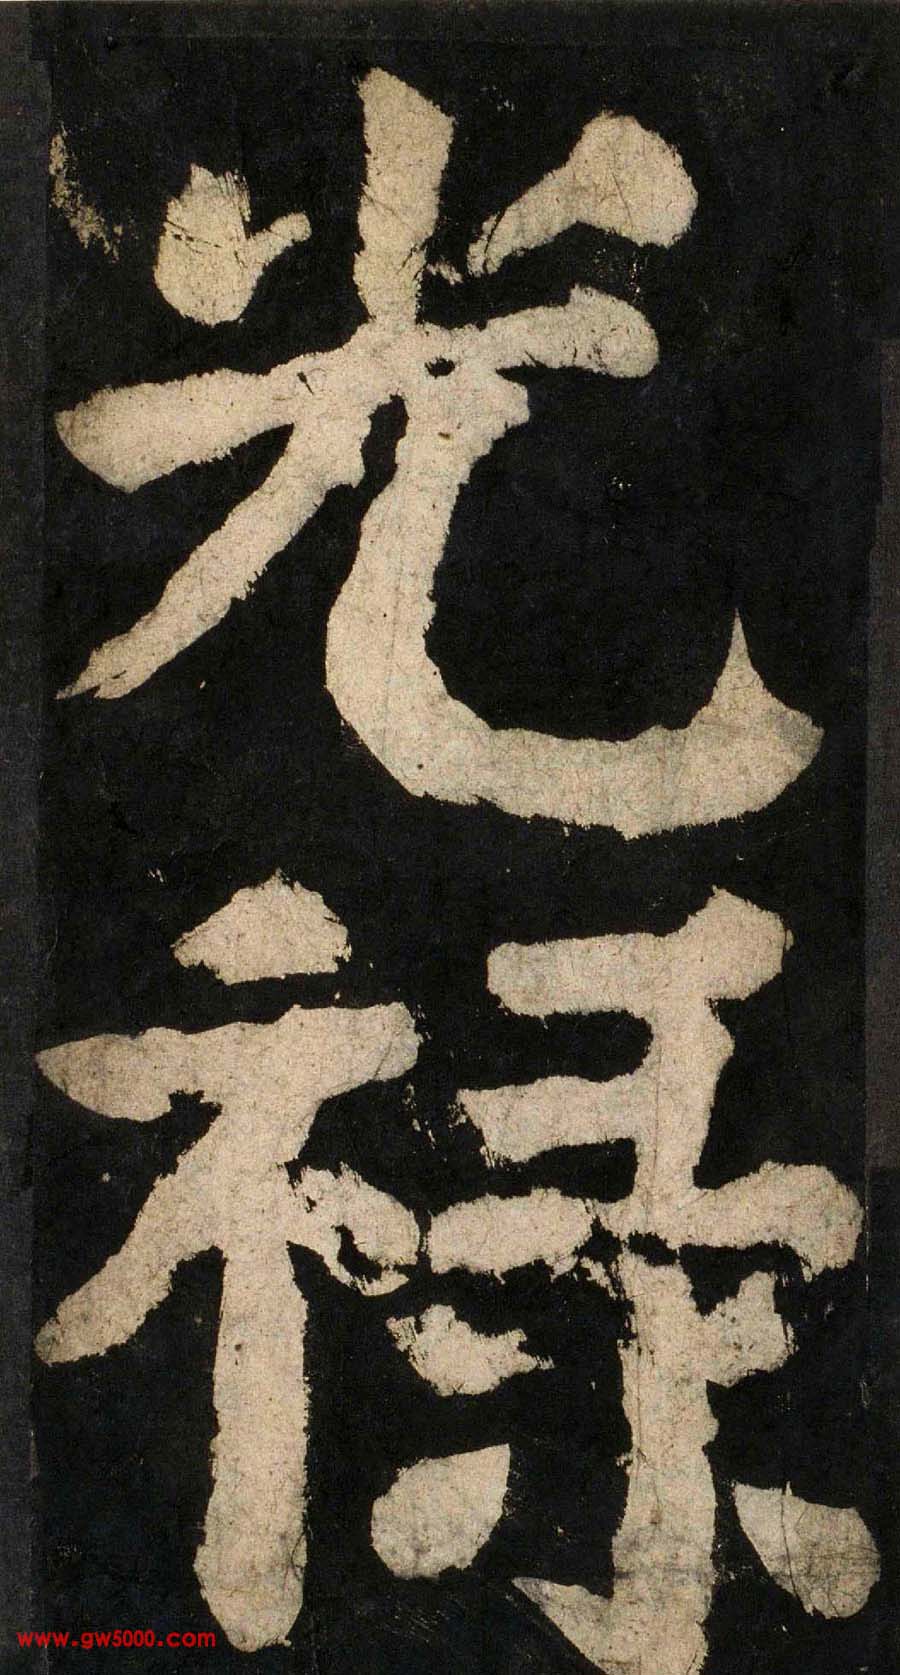 光
禄
www.gw5000.com